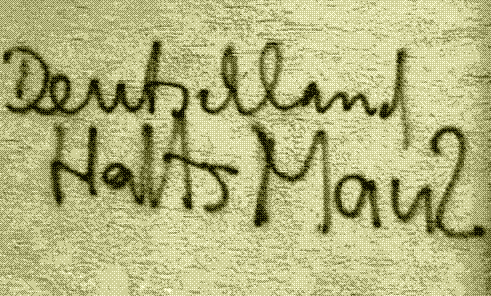 Deutschland
Halts Maul